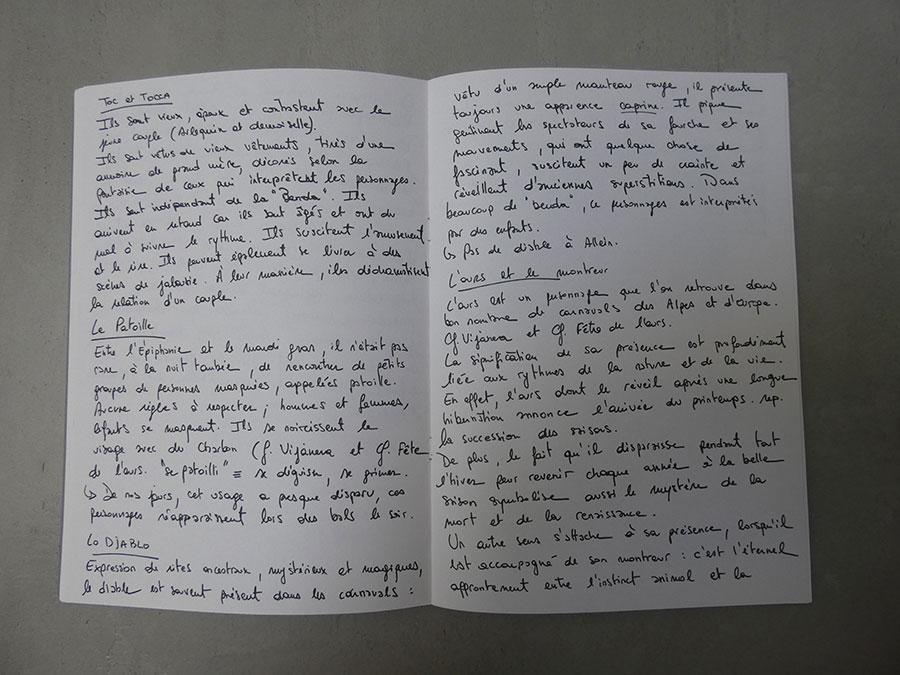 Toc et TOCCA
Ils sont vieux, époux et contrastent avec le
jeune couple (Arlequin et demoiselle).
Ils sont vêtus de vieux vêtements, tirés d'une
armoire de grand mère, décorés selon la
fantaisie de ceux qui interprètent les personnages.
Ils sont indépendant de la "Benda". Ils
arrivent en retard car ils sont âgés et ont du
mal à suivre le rythme. Ils suscitent l'amusement
et le rire. Ils peuvent également se livrer à des
scènes de jalousie. À leur manière, ils dédramatisent
la relation d'un couple.
Le Patoille
Entre l'Épiphanie et le mardi gras, il n'était pas
rare, à la nuit tombée, de rencontrer de petits
groupes de personnes masquées, appelées patoille.
Aucune règles à respecter; hommes et femmes,
enfants se masquent. Ils se noircissent le
visage avec du Charbon (cf. Vijanera et cf. Fête
de l'ours. "se patoilli" = se déguiser, se grimer.
↳ De nos jours, cet usage a presque disparu, ces
personnages réapparaissent lors des bals le soir.
Lo DJABLO
Expression de rites ancestraux, mystérieux et magiques,
le diable est souvent présent dans les carnavals :
vêtu d'un simple manteau rouge, il présente
toujours une apparence caprine. Il pique
gentiment les spectateurs de sa fourche et ses
mouvements, qui ont quelque chose de
fascinant, suscitent un peu de crainte et
réveillent d'anciennes superstitions. Dans
beaucoup de "benda", ce personnages est interprétés
par des enfants.
↳ Pas de diable à Allein.
L'ours et le montreur
L'ours est un personnage que l'on retrouve dans
bon nombre de carnavals des Alpes et d'Europe.
Cf. Vijanera et Cf. Fête de l'ours.
La signification de sa présence est profondément
liée aux rythmes de la nature et de la vie.
En effet, l'ours dont le réveil après une longue
hibernation annonce l'arrivée du printemps. rep.
la succession des saisons.
De plus, le fait qu'il disparaisse pendant tout
l'hiver pour revenir chaque année à la belle
saison symbolise aussi le mystère de la
mort et de la renaissance.
Un autre sens s'attache à sa présence, lorsqu'il
est accompagné de son montreur : c'est l'éternel
affrontement entre l'instinct animal et la